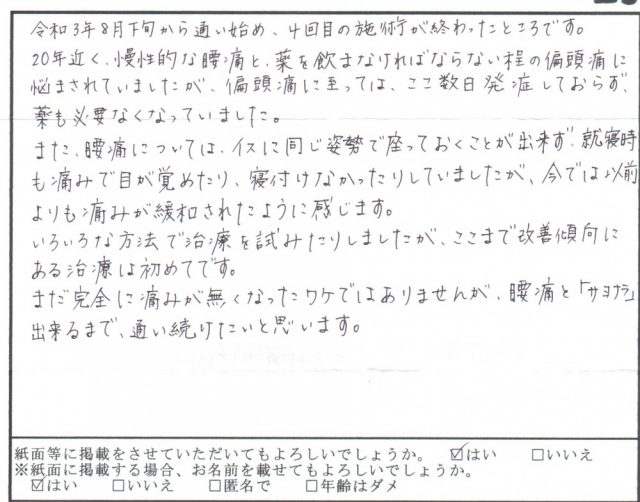 令和3年8月下旬から通い始め、4回目の施術が終わったところです。
20年近く、慢性的な腰痛と、薬を飲まなければならない程の偏頭痛に
悩まされていましたが、偏頭痛に至っては、ここ数日発症しておらず、
薬も必要なくなっていました。
また、腰痛については、イスに同じ姿勢で座っておくことが出来ず、就寝時
も痛みで目が覚めたり、寝付けなかったりしていましたが、今では以前
よりも痛みが緩和されたように感じます。
いろいろな方法で治療を試みたりしましたが、ここまで改善傾向に
ある治療は初めてです。
まだ完全に痛みが無くなったワケではありませんが、腰痛と「サヨナラ」
出来るまで、通い続けたいと思います。
紙面等に掲載をさせていただいてもよろしいでしょうか。 ☑はい □いいえ
※紙面に掲載する場合、お名前を載せてもよろしいでしょうか。
☑はい □いいえ □匿名で □年齢はダメ